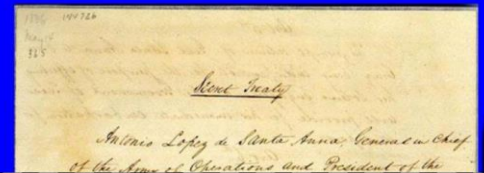 1836
May 14
365
Sicret Treaty
Antonio Lopez de Santa Anna, General in Chief
of the Army of Operations and President of the